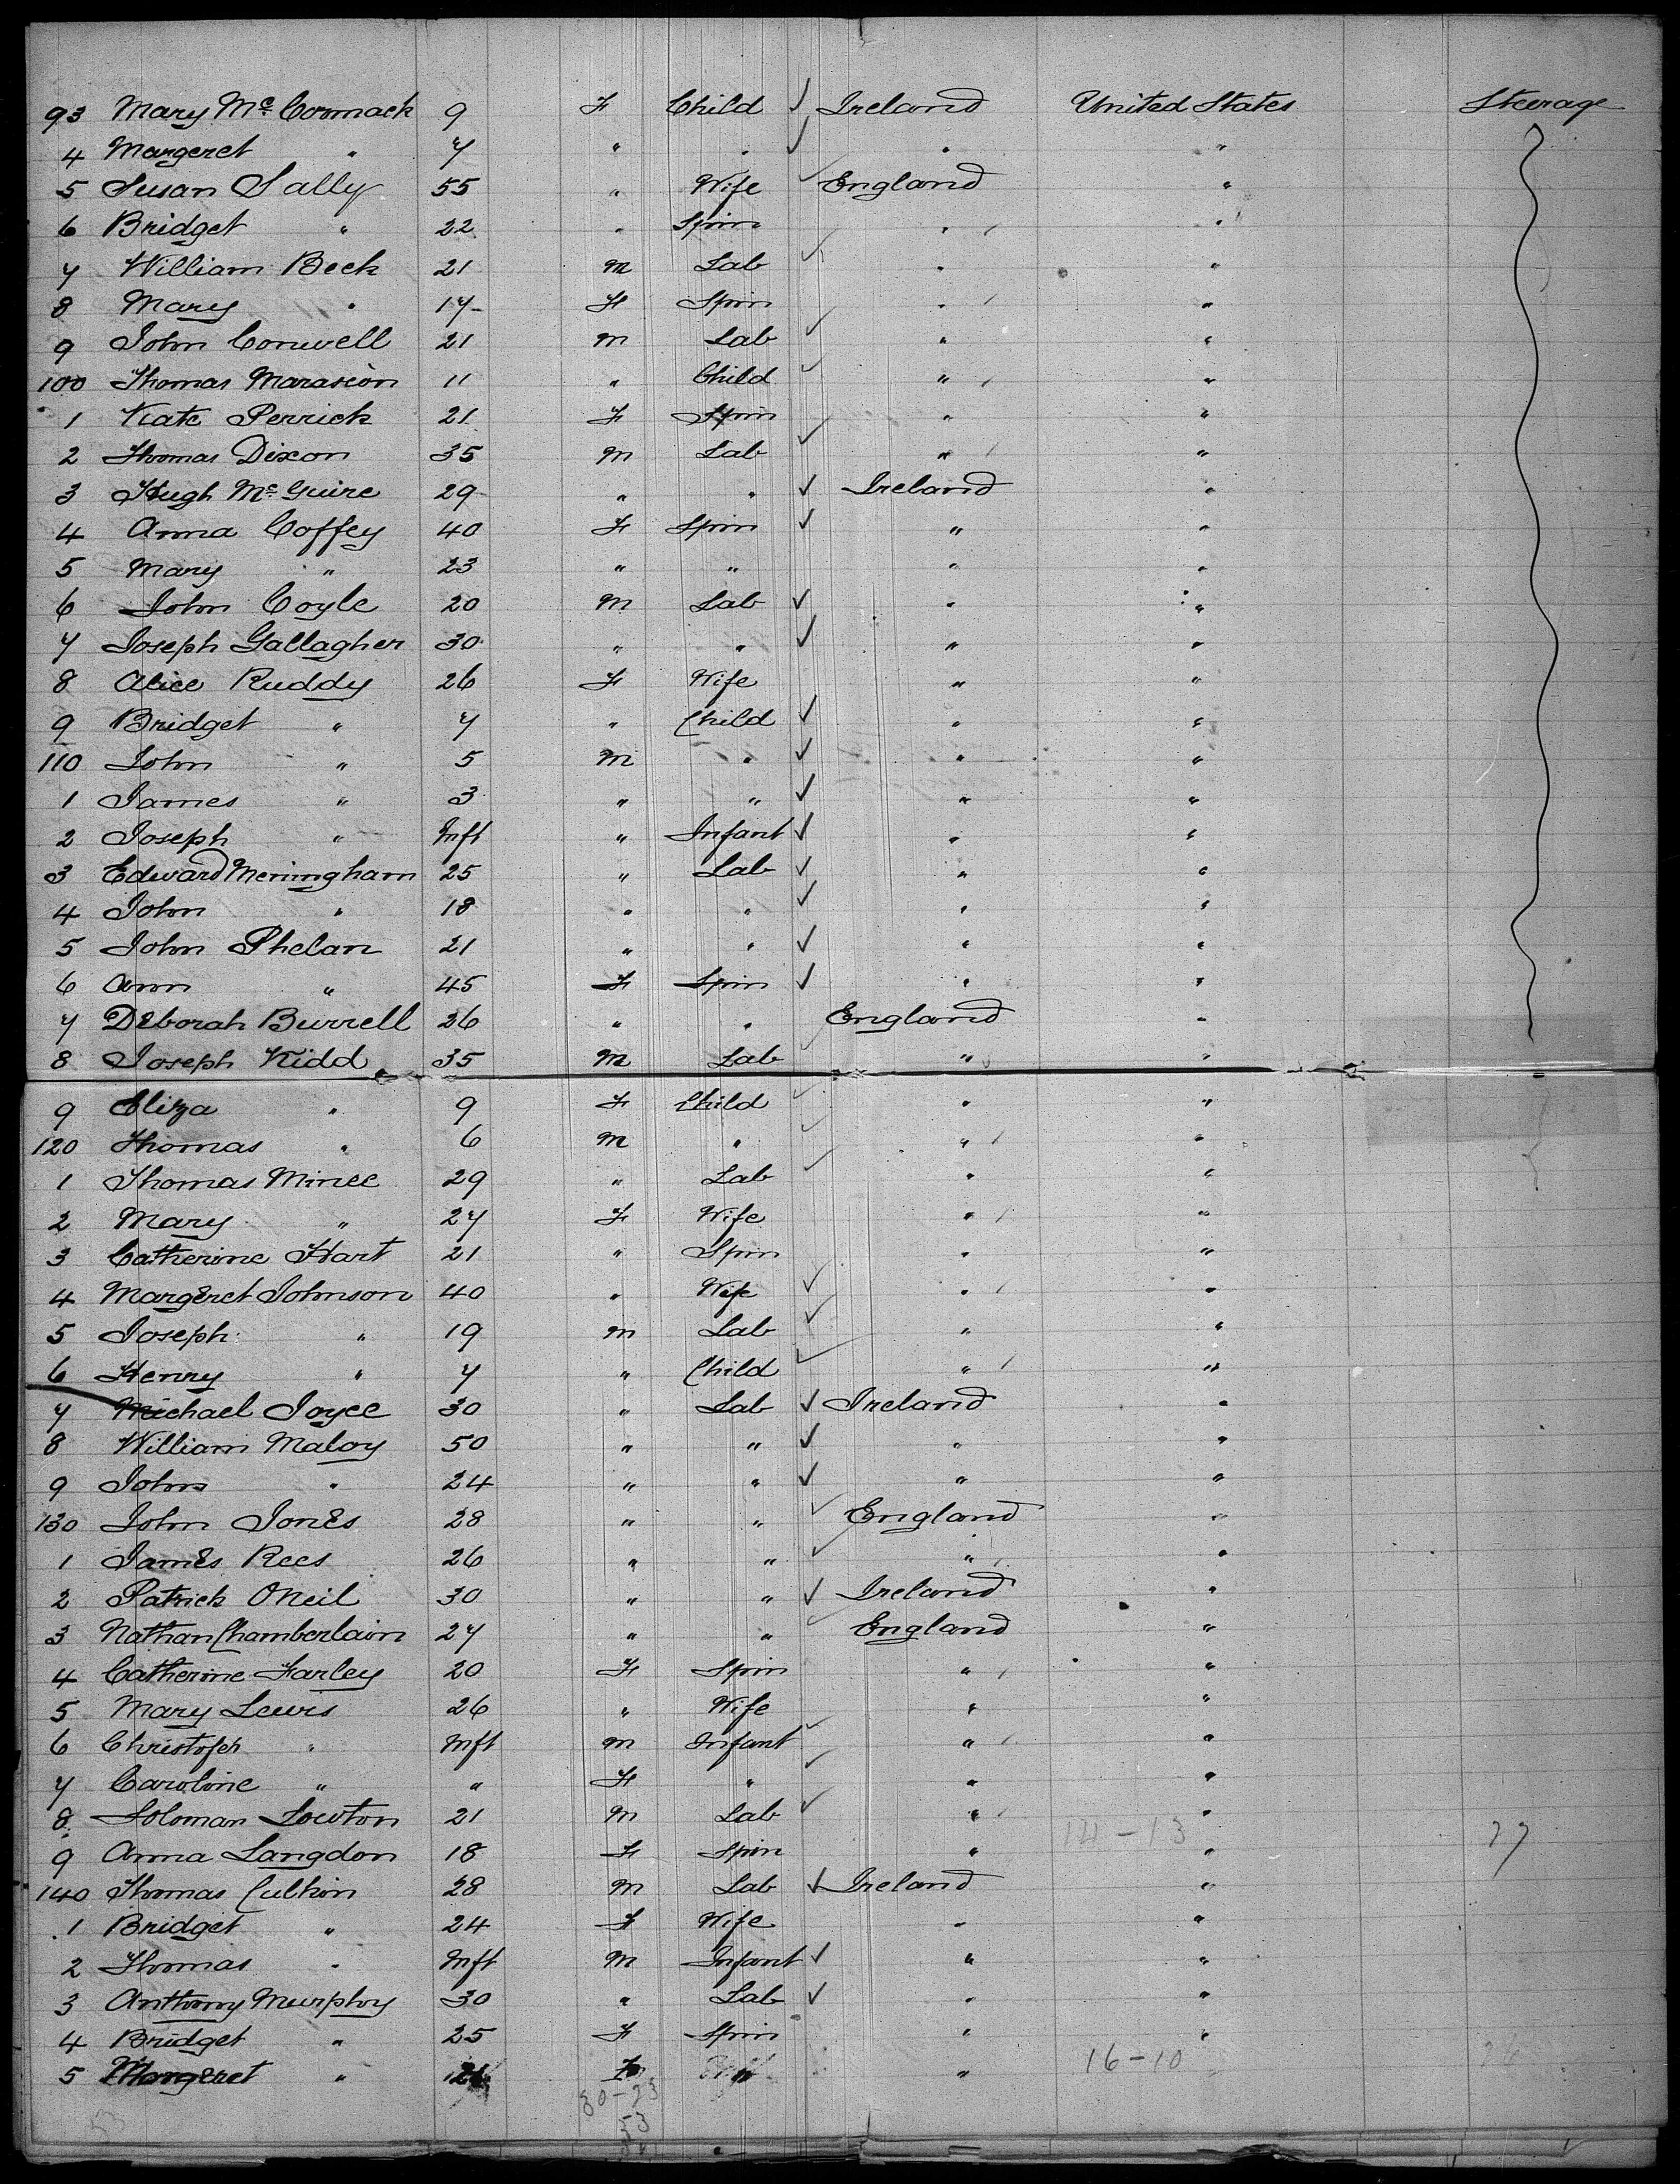 93 Mary Mc Cormack 9 F Child ✓ Ireland United States Steerage
4 Margeret " 7 " " ✓ " "
5 Susan Lally 55 " Wife ✓ England "
6 Bridget " 22 " Spin " "
7 William Beck 21 M Lab ✓ " "
8 Mary " 17 F Spin " "
9 John Conwell 21 M Lab ✓ " "
100 Thomas 11 " Child ✓ " "
1 Kate Perrick 21 F Spin " "
2 Thomas Dixon 35 M Lab ✓ " "
3 Hugh Mc Guire 29 " " ✓ Ireland "
4 Anna Coffey 40 F Spin ✓ " "
5 Mary " 23 " " " "
6 John Coyle 20 M Lab ✓ " "
7 Joseph Gallagher 30 " " ✓ " "
8 Alice Ruddy 26 F Wife " "
9 Bridget " 7 " Child ✓ " "
110 John " 5 M " ✓ " "
1 James " 3 " " ✓ " "
2 Joseph " Inft " Infant ✓ " "
3 Edward Meningham 25 " Lab ✓ " "
4 John " 18 " " ✓ " "
5 John Phelan 21 " " ✓ " "
6 Ann " 45 F Spin ✓ " "
7 Deborah Burrell 26 " " England "
8 Joseph Kidd 35 M Lab ✓ " "
9 Eliza " 9 F Child ✓ " "
120 Thomas " 6 M " ✓ " "
1 Thomas Minee 29 " Lab ✓ " "
2 Mary " 27 F Wife " "
3 Catherine Hart 21 " Spin " "
4 Margeret Johnson 40 " Wife ✓ " "
5 Joseph " 19 M Lab ✓ " "
6 Henry " 7 " Child ✓ " "
7 Michael Joyce 30 " Lab ✓ Ireland "
8 William Maloy 50 " " ✓ " "
9 John " 24 " " ✓ " "
130 John Jones 28 " " ✓ England "
1 James Rees 26 " " ✓ " "
2 Patrick ONeil 30 " " ✓ Ireland "
3 Nathan Chamberlain 27 " " ✓ England "
4 Catherine Farley 20 F Spin " "
5 Mary Lewis 26 " Wife " "
6 Christoph " Inft M Infant ✓ " "
7 Caroline " " F " ✓ " "
8 Soloman Lowton 21 M Lab ✓ " "
14-13 27
9 Anna Langdon 18 F Spin " "
140 Thomas Culkin 28 M Lab ✓ Ireland "
1 Bridget " 24 F Wife " "
2 Thomas " Inft M Infant ✓ " "
3 Anthony Murphy 30 " Lab ✓ " "
4 Bridget " 25 F Spin " "
16-10 26
5 Margeret " F " "
30-23
53